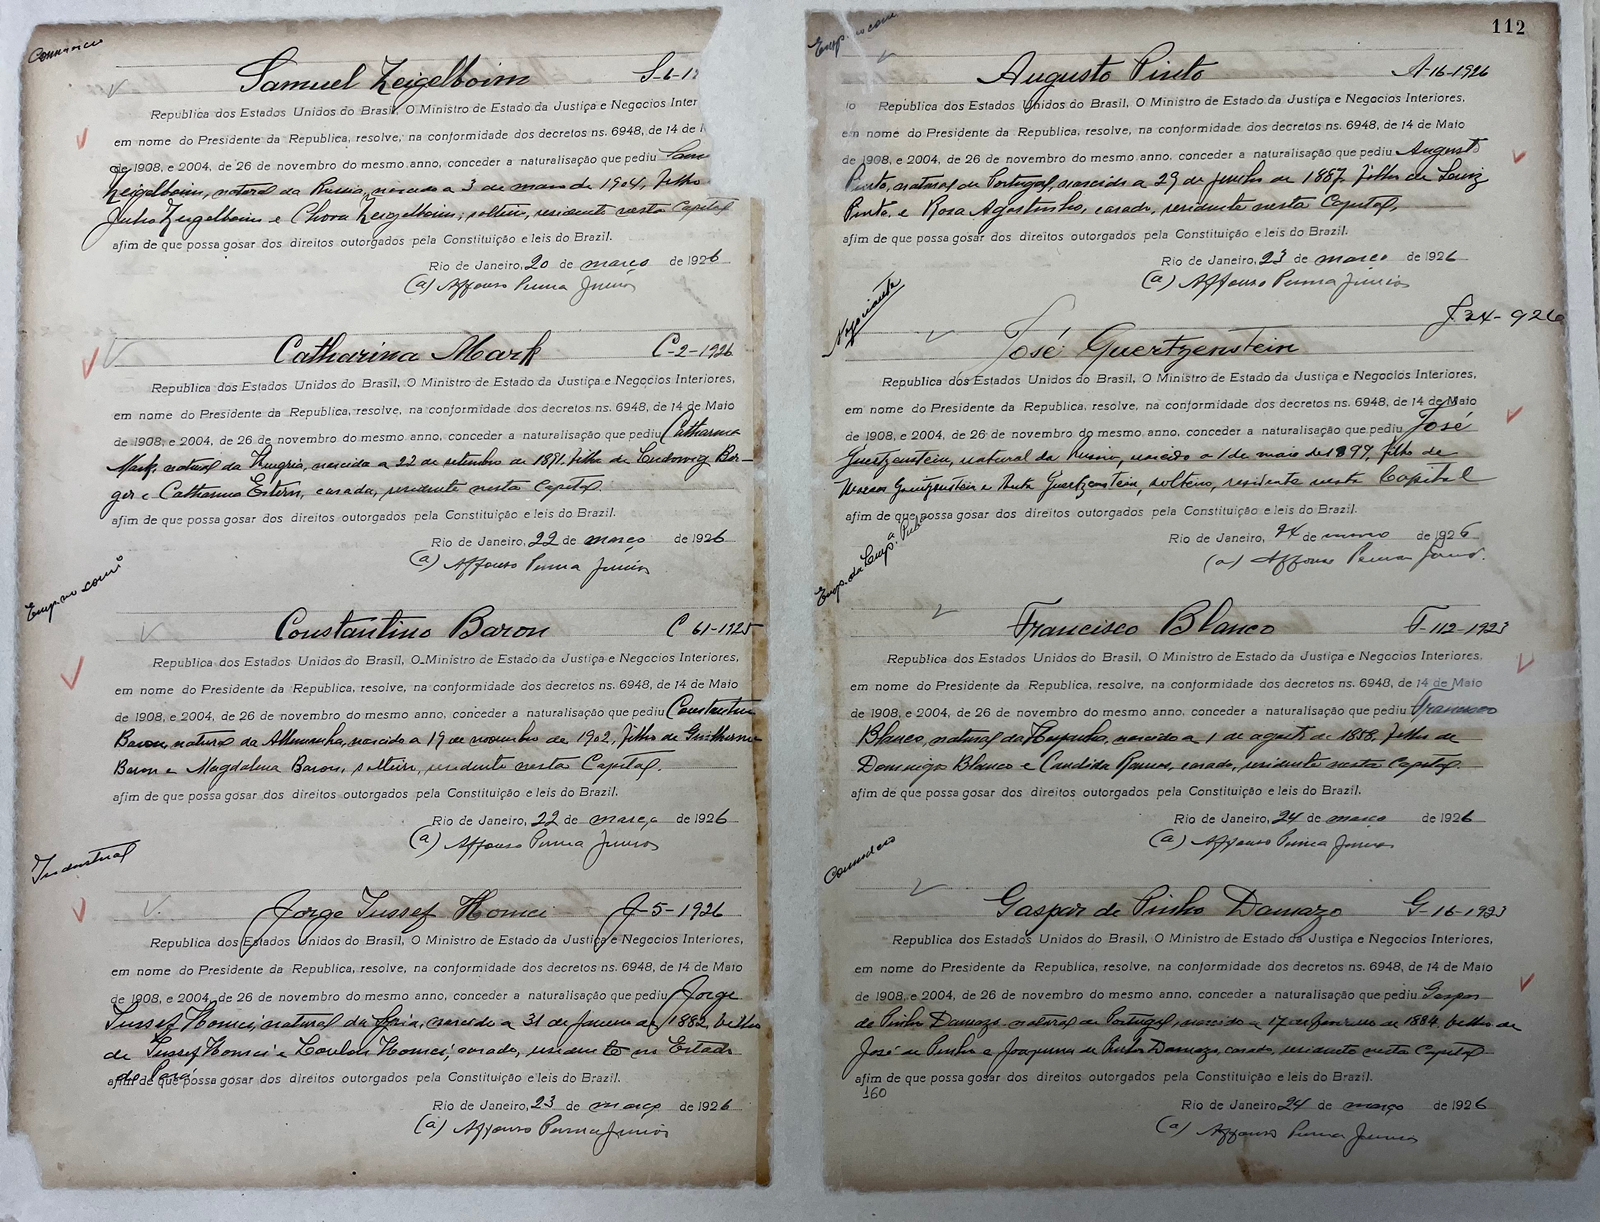 Commercio
Samuel Zeigelboim S-6-19
Republica dos Estados Unidos do Brasil, O Ministro de Estado da Justiça e Negocios Inter
em nome do Presidente da Republica, resolve, na conformidade dos decretos ns. 6948, de 14 de
de 1908, e 2004, de 26 de novembro do mesmo anno, conceder a naturalisação que pediu Sam
Zeigelboim, natural da Russia, nascido a 3 de maio de 1904, filho
Julio Zeigelboim e Chova Zeigelboim, solteiro, residente nesta Capital
afim de que possa gosar dos direitos outorgados pela Constituição e leis do Brazil.
Rio de Janeiro, 20 de março de 1926
(a) Affonso Penna Junior
Catharina Mark C-2-1926
Republica dos Estados Unidos do Brasil, O Ministro de Estado da Justiça e Negocios Interiores,
em nome do Presidente da Republica, resolve, na conformidade dos decretos ns. 6948, de 14 de Maio
de 1908, e 2004, de 26 de novembro do mesmo anno, conceder a naturalisação que pediu Catharina
Mark, natural da Hungria, nascida a 22 de setembro de 1871, filha de Ludowig Ber-
ger e Catharina Estern, casada, residente nesta Capital.
afim de que possa gosar dos direitos outorgados pela Constituição e leis do Brazil.
Rio de Janeiro, 22 de março de 1926
(a) Affonso Penna Junior
Emp. no comº
Constantino Baron C 61-1925
Republica dos Estados Unidos do Brasil, O Ministro de Estado da Justiça e Negocios Interiores,
em nome do Presidente da Republica, resolve, na conformidade dos decretos ns. 6948, de 14 de Maio
de 1908, e 2004, de 26 de novembro do mesmo anno, conceder a naturalisação que pediu Constantino
Baron, natural da Allemanha, nascido a 19 de novembro de 1902, filho de Guilherme
Baron e Magdalena Baron, solteiro, residente nesta Capital.
afim de que possa gosar dos direitos outorgados pela Constituição e leis do Brazil.
Rio de Janeiro, 22 de março de 1926
(a) Affonso Penna Junior
Industrial
Jorge Jussef Homci J-5-1926
Republica dos Estados Unidos do Brasil, O Ministro de Estado da Justiça e Negocios Interiores,
em nome do Presidente da Republica, resolve, na conformidade dos decretos ns. 6948, de 14 de Maio
de 1908, e 2004, de 26 de novembro do mesmo anno, conceder a naturalisação que pediu Jorge
Jussef Homci, natural da Syria, nascido a 31 de Janeiro de 1882, filho
de Jussef Homci e Homci, casado, residente no Estado
do Pará
afim de que possa gosar dos direitos outorgados pela Constituição e leis do Brazil.
Rio de Janeiro, 23 de março de 1926
(a) Affonso Penna Junior
112
Emp. no com
Augusto Pinto A-16-1926
Republica dos Estados Unidos do Brasil, O Ministro de Estado da Justiça e Negocios Interiores,
em nome do Presidente da Republica, resolve, na conformidade dos decretos ns. 6948, de 14 de Maio
de 1908, e 2004, de 26 de novembro do mesmo anno, conceder a naturalisação que pediu Augusto
Pinto, natural de Portugal, nascido a 29 de junho de 1887, filho de Luiz
Pinto e Rosa Agostinho, casado, residente nesta Capital,
afim de que possa gosar dos direitos outorgados pela Constituição e leis do Brazil.
Rio de Janeiro, 23 de março de 1926
(a) Affonso Penna Junior
Negociante
J 24-926
José Guertzenstein
Republica dos Estados Unidos do Brasil, O Ministro de Estado da Justiça e Negocios Interiores,
em nome do Presidente da Republica, resolve, na conformidade dos decretos ns. 6948, de 14 de Maio
de 1908, e 2004, de 26 de novembro do mesmo anno, conceder a naturalisação que pediu José
Guertzenstein, natural da Russia, nascido a 1 de maio de 1899, filho de
Guertzenstein e Guertzenstein, solteiro, residente nesta Capital
afim de que possa gosar dos direitos outorgados pela Constituição e leis do Brazil.
Rio de Janeiro, 24 de março de 1926
(a) Affonso Penna Junior
Emp. da Limpª Pub
Francisco Blanco F-112-1923
Republica dos Estados Unidos do Brasil, O Ministro de Estado da Justiça e Negocios Interiores,
em nome do Presidente da Republica, resolve, na conformidade dos decretos ns. 6948, de 14 de Maio
de 1908, e 2004, de 26 de novembro do mesmo anno, conceder a naturalisação que pediu Francisco
Blanco, natural da Hespanha, nascido a 1 de agosto de 1888, filho de
Domingo Blanco e Candida Ramos, casado, residente nesta Capital.
afim de que possa gosar dos direitos outorgados pela Constituição e leis do Brazil.
Rio de Janeiro, 24 de março de 1926
(a) Affonso Penna Junior
Gaspar de Pinho Damazo G-16-1923
Republica dos Estados Unidos do Brasil, O Ministro de Estado da Justiça e Negocios Interiores,
em nome do Presidente da Republica, resolve, na conformidade dos decretos ns. 6948, de 14 de Maio
de 1908, e 2004, de 26 de novembro do mesmo anno, conceder a naturalisação que pediu Gaspar
de Pinho Damazo, natural de Portugal, nascido a 17 de fevereiro de 1884, filho de
José de Pinho e Joaquina de Pinho Damazo, casado, residente nesta Capital
afim de que possa gosar dos direitos outorgados pela Constituição e leis do Brazil.
160
Rio de Janeiro, 24 de março de 1926
(a) Affonso Penna Junior